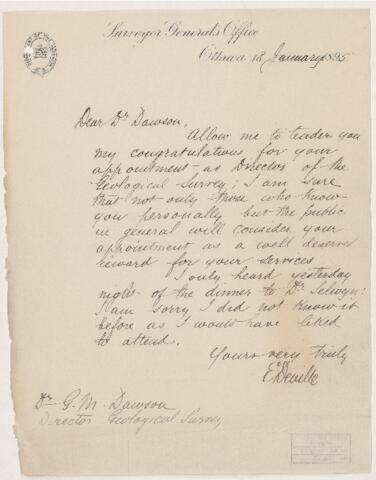 Surveyor General's Office
Ottawa 18 January 1895
Dear Dr Dawson,
Allow me to tender you
my congratulations for your
appointment as Director of the
Geological Survey; I am sure
that not only those who know
you personally but the public
in general will consider your
appointment as a well deserved
reward for your services
I only heard yesterday
night of the dinner to Dr Selwyn:
I am sorry I did not know it
before as I would have liked
to attend.
Yours very truly
E Deville
Dr G. M. Dawson
Director Geological Survey